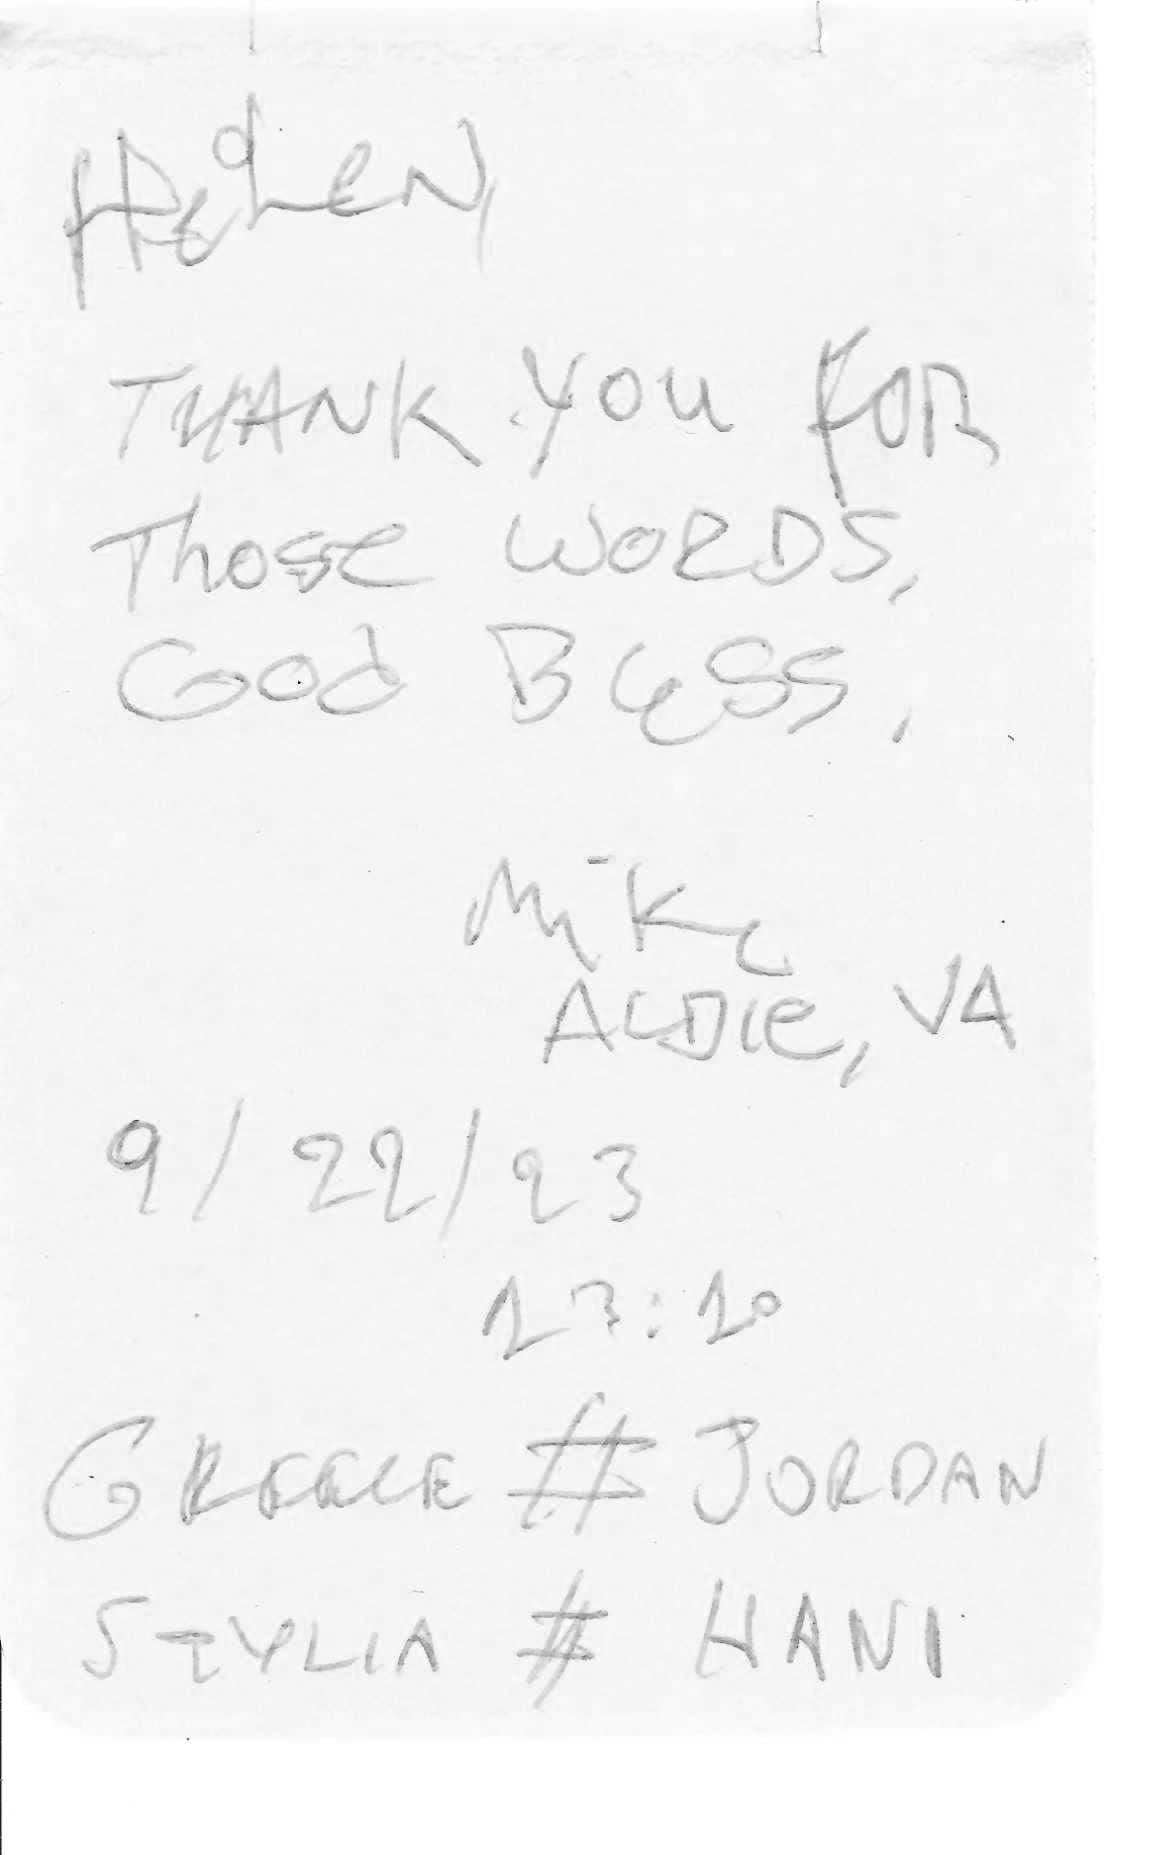 Helen,
THANK YOU FOR
Those WORDS,
God BLESS,
Mike
ALDIE, VA
9/22/23
17:10
GREECE # JORDAN
STYLIA # HANI